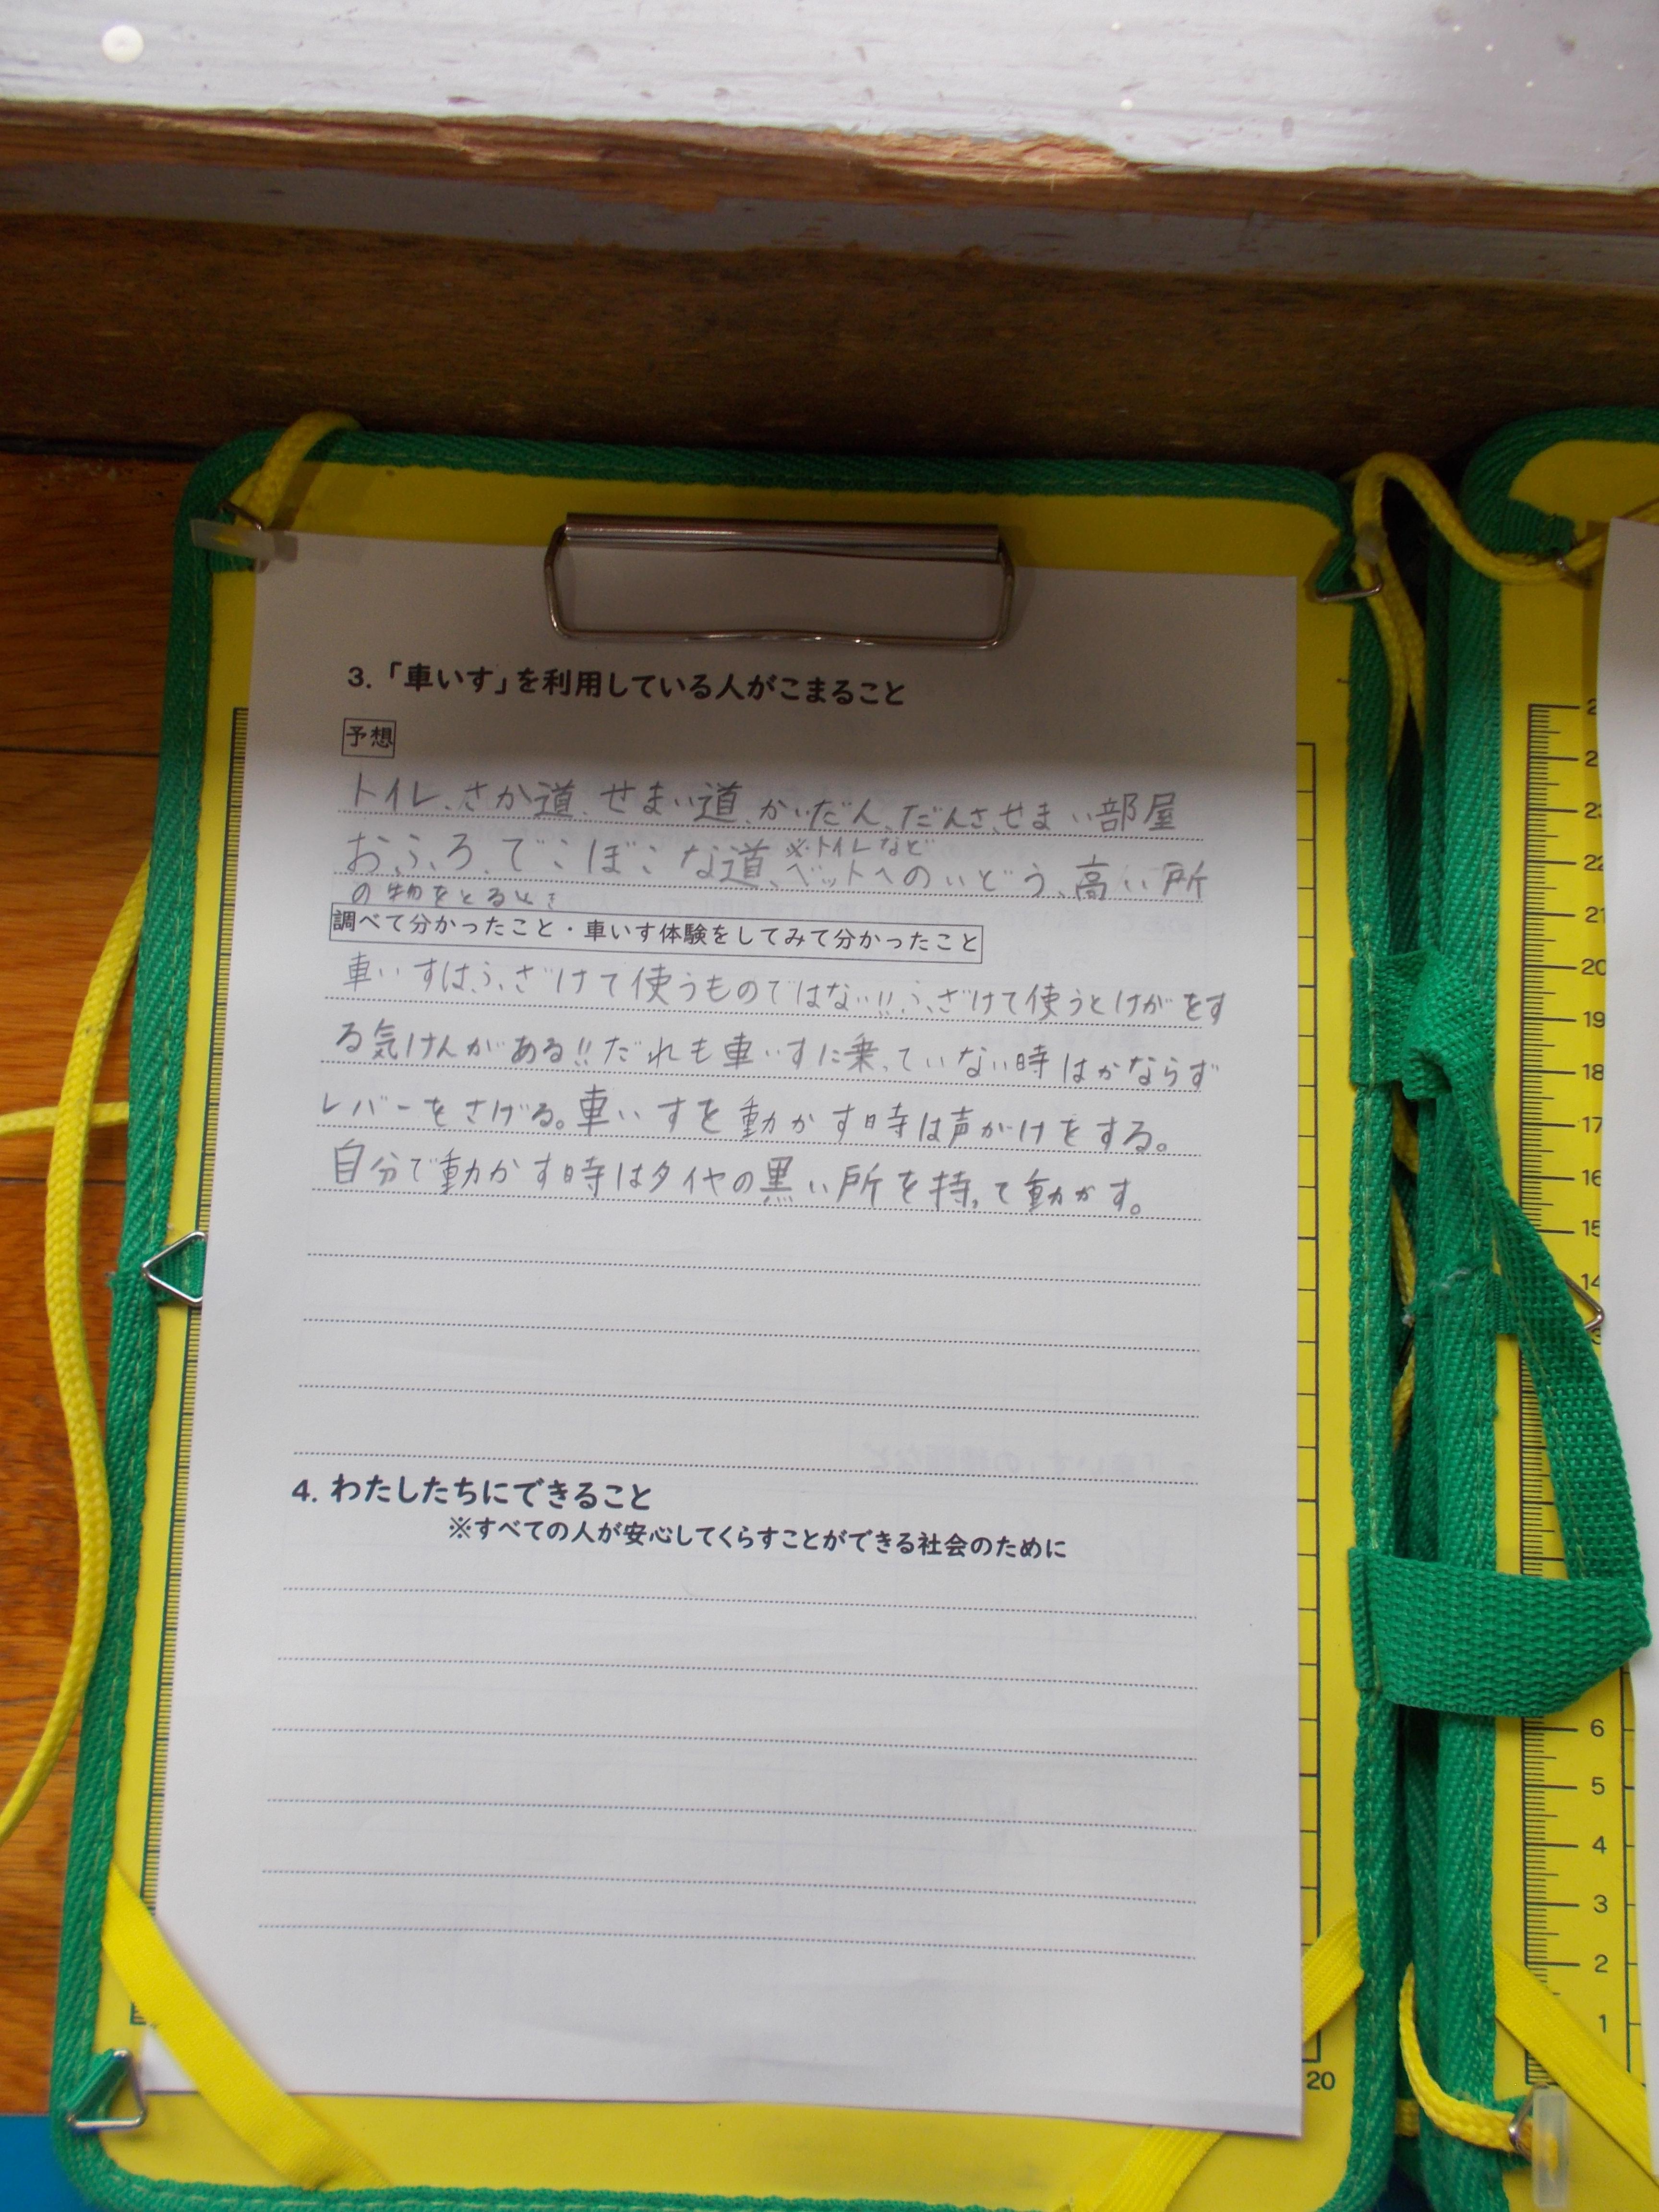 3.「車いす」を利用している人がこまること
予想
トイレ、さか道、せまい道、かいだん、だんさ、せまい部屋
おふろ、でこぼこな道、ベットへのいどう、高い所
※トイレなど
の物をとるとき
調べて分かったこと・車いす体験をしてみて分かったこと
車いすはふざけて使うものではない!!ふざけて使うとけがをす
る気けんがある!!だれも車いすに乗っていない時はかならず
レバーをさげる。車いすを動かす時は声がけをする。
自分で動かす時はタイヤの黒い所を持って動かす。
4. わたしたちにできること
※すべての人が安心してくらすことができる社会のために
20
22
21
20
19
18
17
16
15
14
6
5
4
3
2
1